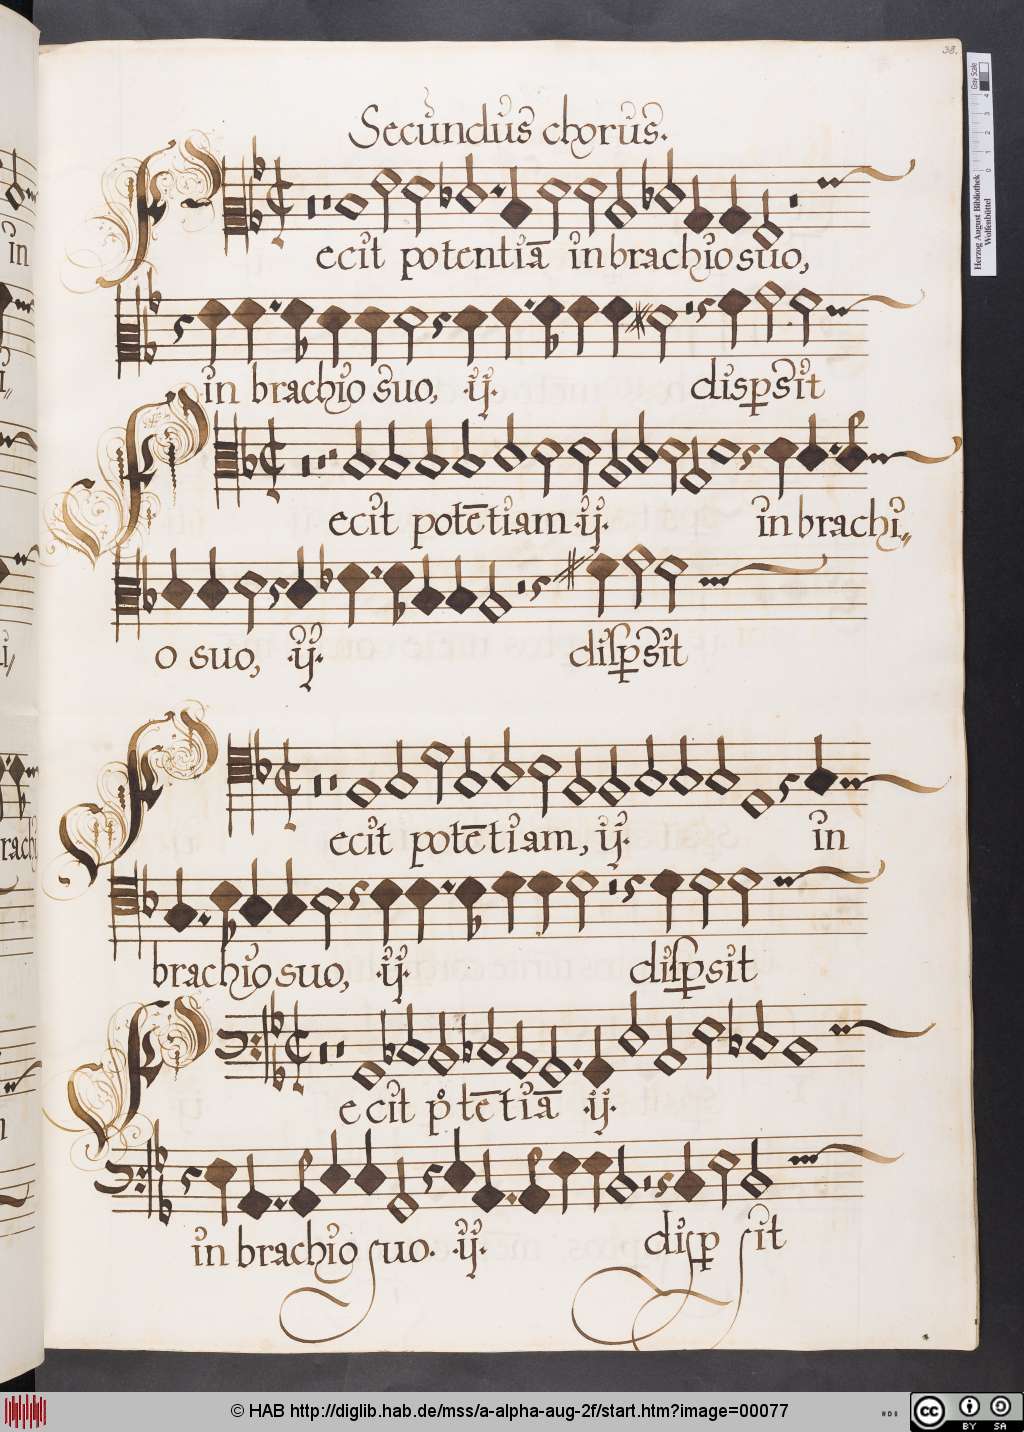 38.
Secundus chorus.
Fecit potentiā in brachio suo,
in brachio suo, ·ij· dispsit
Fecit potētiam ·ij· in brachi,,
o suo, ·ij· dispsit
Fecit potētiam, ij· in
brachio suo, ·ij· dispsit
Fecit potētiā ·ij·
in brachio suo. ·ij· dispsit
in
rachi
Gray Scale
0 1 2 3 4
Herzog August Bibliothek
Wolfenbüttel
© HAB http://diglib.hab.de/mss/a-alpha-aug-2f/start.htm?image=00077
cc BY SA